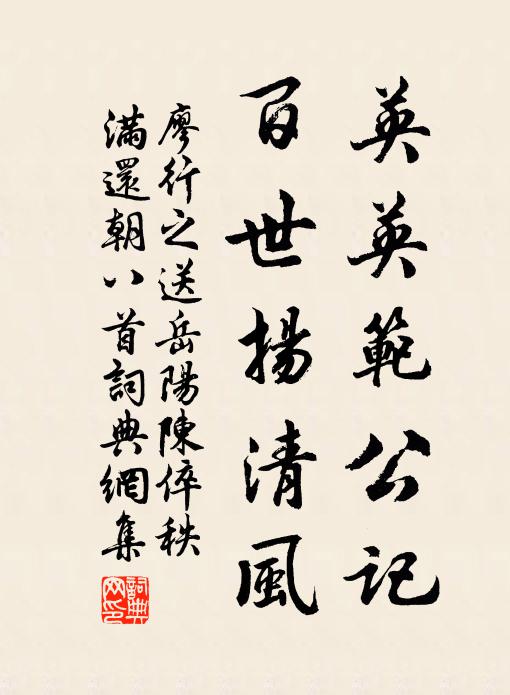 英英範公記
百世揚清風
廖行之送岳陽陳倅秩
滿還朝八首詞典網集
詞典网印